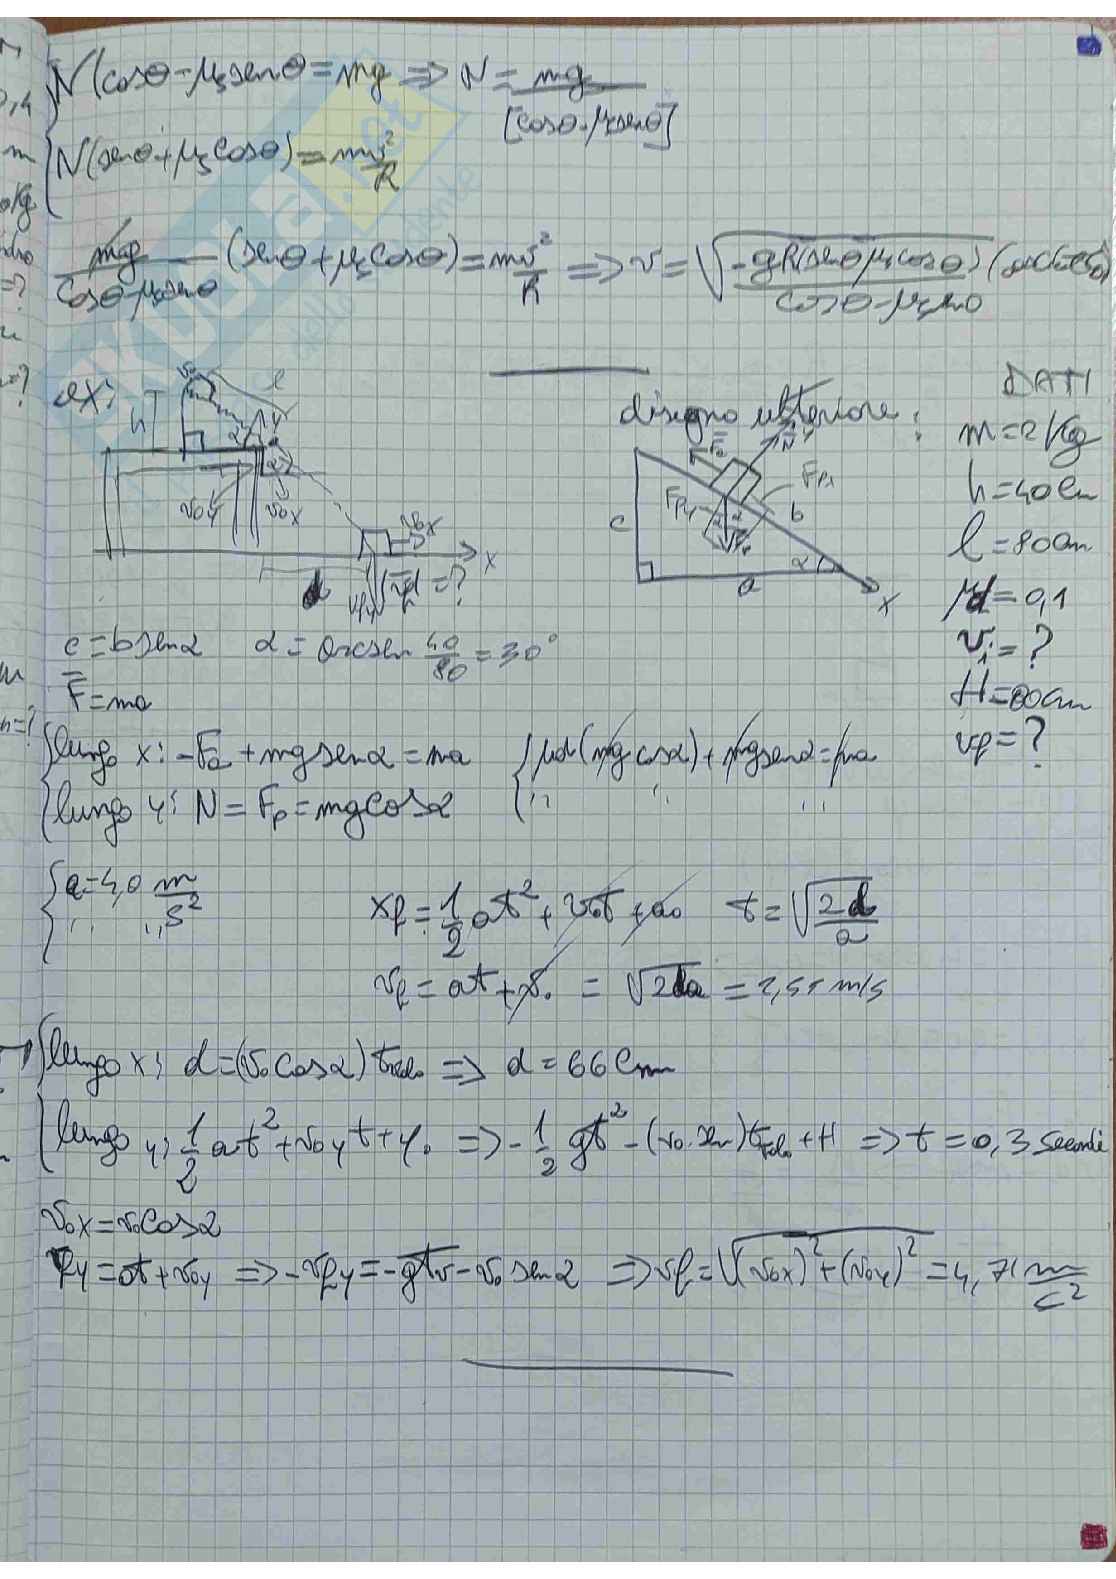 N(cosθ-μs senθ = mg ⇒ N = mg / [cosθ-μs senθ]
N(senθ+μs cosθ) = mv²/R
mg / cosθ-μs senθ (senθ+μs cosθ) = mv²/R ⇒ v = √-gR(senθμs cosθ) / cosθ-μs senθ
ex:
h
l
α
v0y
v0x
d
vfx
vfy
|vf| = ?
X
disegno ulteriore:
N
y
Fa
Fp
c
b
a
α
X
DATI
m=2Kg
h=40cm
l=80cm
μd=0,1
vi=?
H=80cm
vf=?
c=b senα α=arcsen 40/80 = 30°
F=ma
lungo x: -Fa+mg senα=ma μd(mg cosα)+mg senα=ma
lungo y: N=Fp=mg cosα " " "
a=4,0 m/s²
xf=1/2 at²+v0t+x0 t=√2d/a
vf=at+v0 = √2da = 2,55 m/s
lungo x: d=(v0 cosα)tvolo ⇒ d=66cm
lungo y: 1/2 at²+v0y t+y0 ⇒ -1/2 gt²-(v0 sen)tvolo+H ⇒ t=0,3 secondi
v0x=v0cosα
fy=at+v0y ⇒ -vfy=-gtv-v0 senα ⇒ vf=√(v0x)²+(v0y)² = 4,71 m/s²
SKUOLA.net